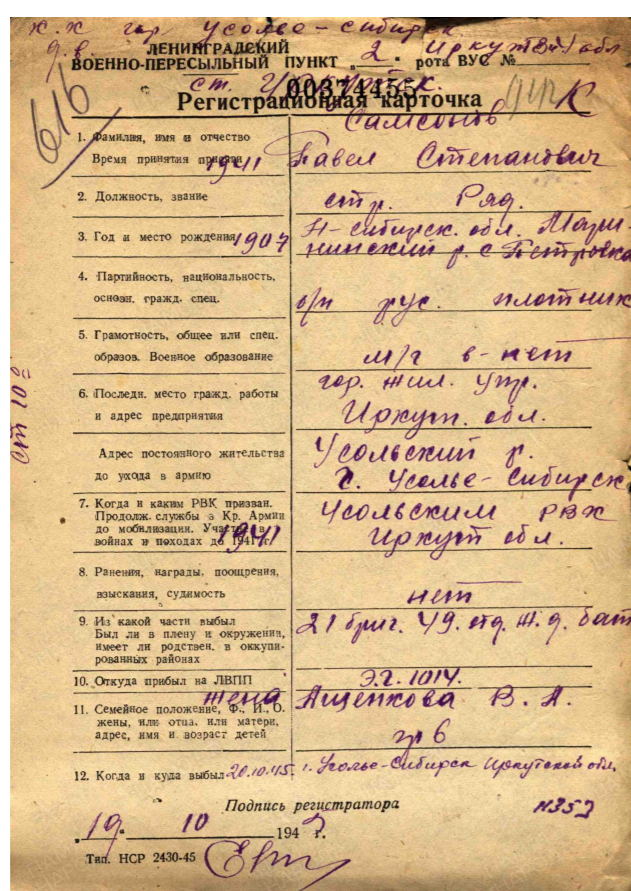 ж. ж гор. Усолье-Сибирск.
ЛЕНИНГРАДСКИЙ
ВОЕННО-ПЕРЕСЫЛЬНЫЙ ПУНКТ „ 2 " рота ВУС №
Иркутской обл
ст.
00374455
Регистрационная карточка
К
616
Самсонов
1. Фамилия, имя и отчество
Время принятия присяги 1941
Павел Степанович
2. Должность, звание
стр. Ряд.
3. Год и место рождения 1907
Н-сибирск. обл. Мари-
инский р. с Петровка
4. Партийность, национальность,
основн. гражд. спец.
б/п рус. плотник
5. Грамотность, общее или спец.
образов. Военное образование
м/г в-нет
6. Последн. место гражд. работы
и адрес предприятия
гор. жил. упр.
Иркут. обл.
Адрес постоянного жительства
до ухода в армию
Усольский р.
г. Усолье-Сибирск
7. Когда и каким РВК призван.
Продолж. службы в Кр. Армии
до мобилизации. Участие в
войнах и походах до 1941 г.
1941
Усольским РВК
Иркут обл.
8. Ранения, награды, поощрения,
взыскания, судимость
нет
9. Из какой части выбыл
Был ли в плену и окружении,
имеет ли родствен. в оккупи-
рованных районах
21 бриг. 49. отд. ж. д. бат
10. Откуда прибыл на ЛВПП
Э.г. 1014.
11. Семейное положение, Ф., И., О.
жены, или отца, или матери,
адрес, имя и возраст детей
жена
Ащепкова В. А.
гр 6
12. Когда и куда выбыл 20.10.45. г. Усолье-Сибирск Иркутской обл.
Подпись регистратора
N353
„19" 10 1945 г.
Тип. НСР 2430-45